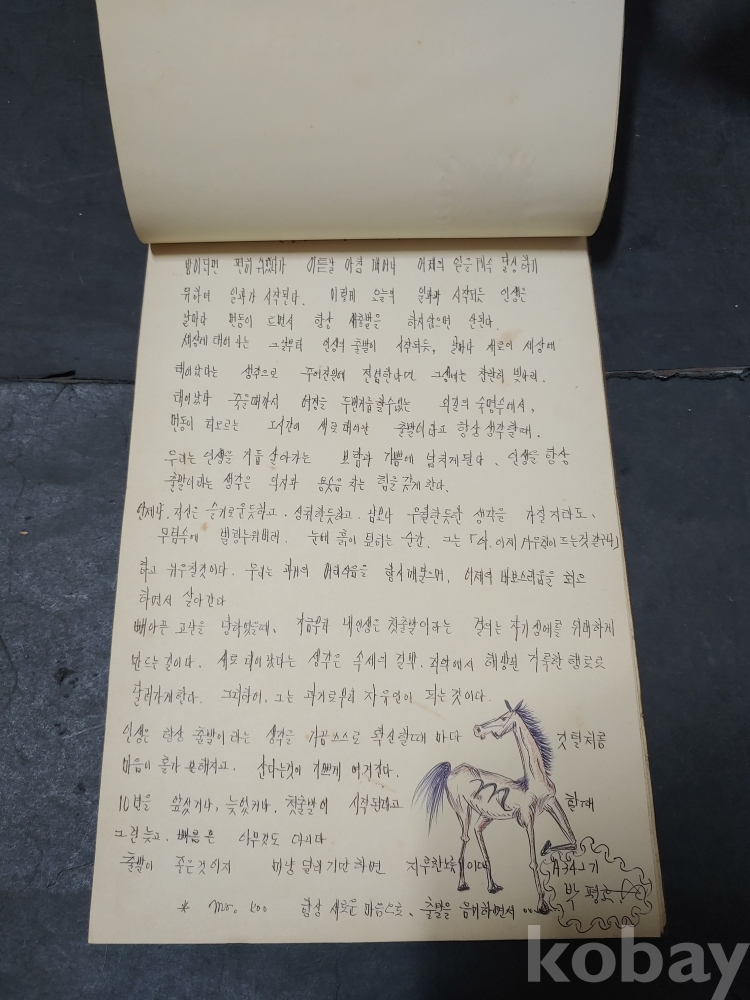 밤이되면 편히 쉬었다가 이튿날 아침 깨어나 어제의 일을 계속 달성하기
위하여 일과가 시작된다. 이렇게 오늘의 일과가 시작되듯 인생은
날마다 먼동이 트면서 항상 새출발을 하지않으면 안된다.
세상에 태어나는 그날부터 인생의 출발이 시작되듯, 날마다 새로이 세상에
태어났다는 생각으로 주어진일에 전념한다면 그생애는 찬란히 빛나리.
태어났다 죽을때까지 여정을 두번거듭할수없는 외길의 숙명속에서,
먼동이 터오르는 그시간이 새로 태어난 출발이라고 항상 생각할때.
우리는 인생을 거듭 살아가는 보람과 기쁨에 넘치게된다. 인생을 항상
출발이라는 생각은 의지와 용솟음 치는 힘을 갖게 한다.
언제나. 자신은 슬기로운듯하고. 성취한듯하고. 남보다 우월한듯한 생각을 가질지라도.
무덤속에 발항누워버려. 눈에 흙이 덮히는 순간. 그는 「아. 이제 자유원이 뜨는것 같구나」
하고 뉘우칠것이다. 우리는 과거의 어리석음을 항시 깨달으며, 어제의 바보스러움을 회오
하면서 살아간다
뼈아픈 고난을 당하였을때. 지금부터 내인생은 첫출발이라는 결의는 자기생애를 위대하게
만드는 길이다. 새로 태어났다는 생각은 속세의 결박. 죄악에서 해방된 거룩한 행로로
달려가게한다. 그리하여, 그는 과거로부터 자유인이 되는것이다.
인생은 항상 출발이라는 생각을 가끔 스스로 확신할때 마다 깃털처럼
마음이 홀가분해지고. 산다는것이 기쁘게 여겨진다.
10년을 앞섰거나, 늦었거나. 첫출발이 시작된다고 할때
그런 늦고. 빠름은 아무것도 아니다
출발이 좋은것이지 마냥 달리기만 하면 지루한노릇이다
* mr. koo 항상 새로운 마음으로. 출발을 음미하면서 ....
A34그기
박 평
kobay